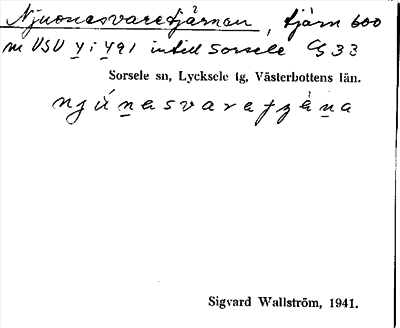 Njuonesvaretjärnen, tjärn 600
m VSV y i 491 intill Sorsele G 33
Sorsele sn, Lycksele tg, Västerbottens län.
Sigvard Wallström, 1941.